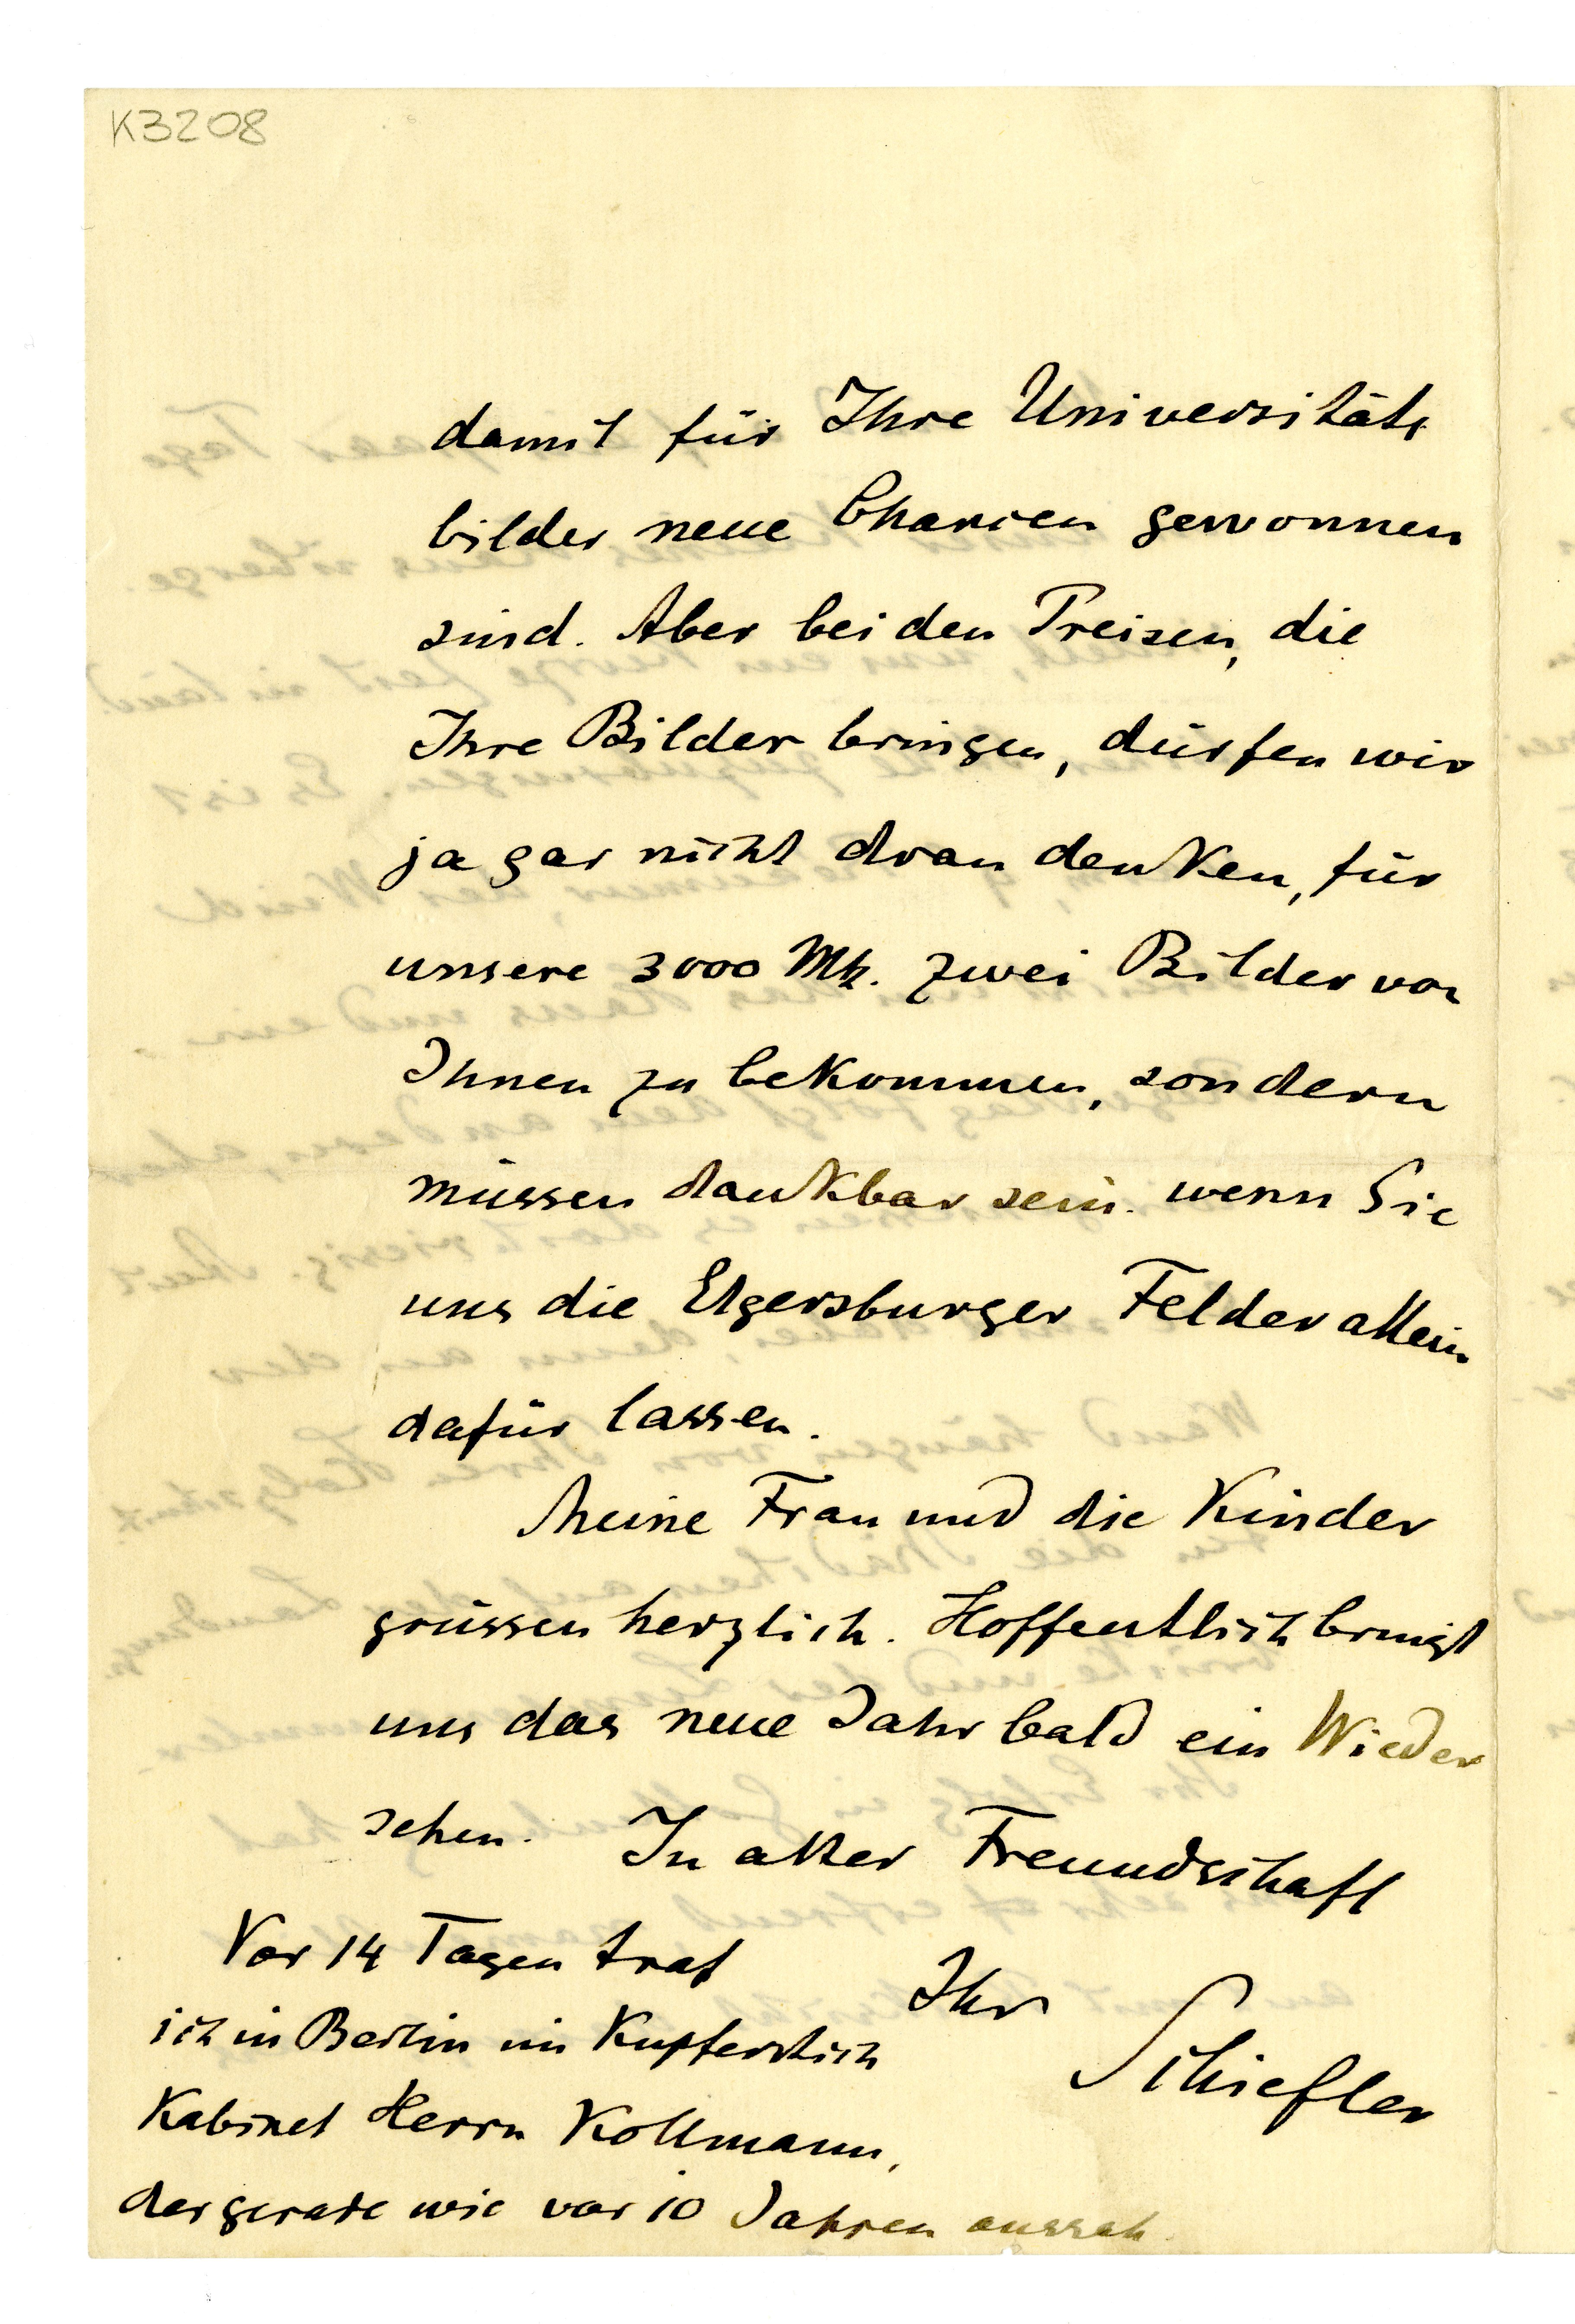 K3208
damit für Ihre Universitäts
bilder neue Chancen gewonnen
sind. Aber bei den Preisen, die
Ihre Bilder bringen, dürfen wir
ja gar nicht dran denken, für
unsere 3000 Mk. zwei Bilder von
Ihnen zu bekommen, sondern
müssen dankbar sein. wenn Sie
uns die Elgersburger Felder allein
dafür lassen.
Meine Frau und die Kinder
grüssen herzlich. Hoffentlich bringt
uns das neue Jahr bald ein Wieder
sehen. In alter Freundschaft
Ihr
Schiefler
Vor 14 Tagen traf
ich in Berlin im Kupferstich
Kabinet Herrn Kollmann,
der gerade wie vor 10 Jahren aussah